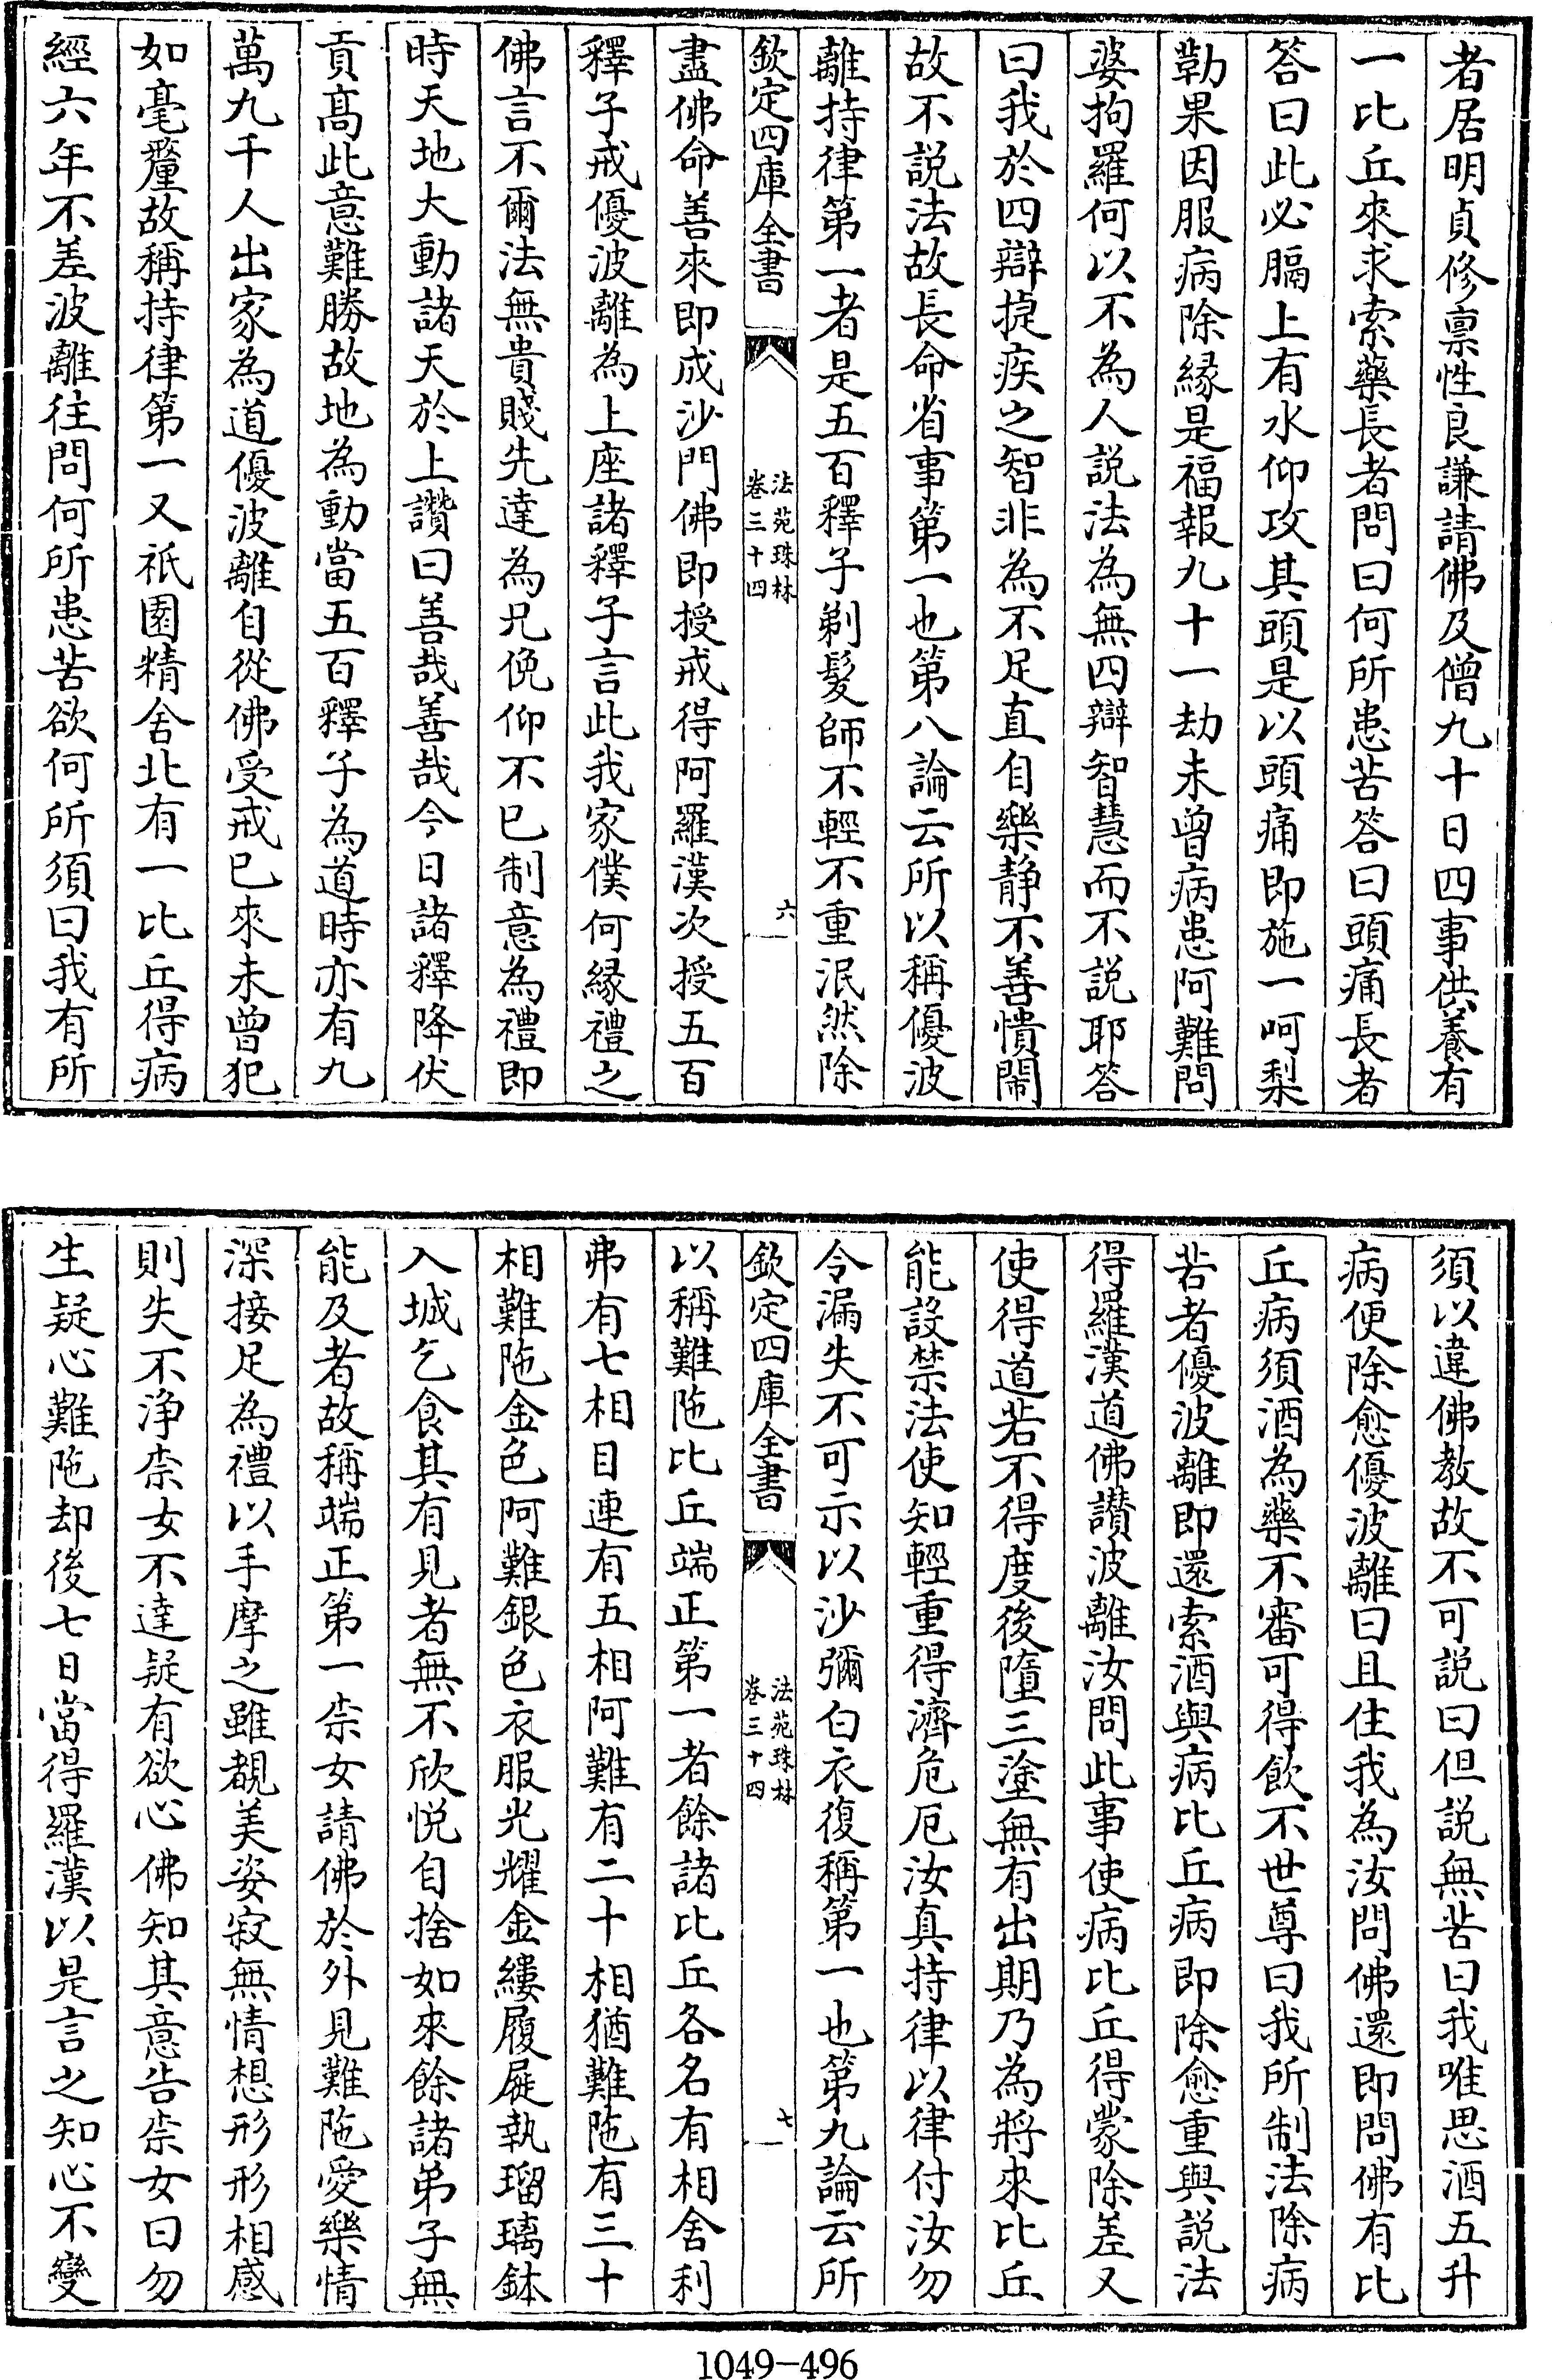 者居明貞修禀性良謙請佛及僧九十日四事供養有
一比丘來求索藥長者問曰何所患苦答曰頭痛長者
答曰此必膈上有水仰攻其頭是以頭痛即施一呵梨
勒果因服病除緣是福報九十一劫未曾病患阿難問
婆拘羅何以不為人說法為無四辯智慧而不說耶答
曰我於四辯捷疾之智非為不足直自樂靜不善憒閙
故不說法故長命省事第一也第八論云所以稱優波
離持律第一者是五百釋子剃髮師不輕不重泯然除
欽定四庫全書
法苑珠林
卷三十四
六
盡佛命善來即成沙門佛即授戒得阿羅漢次授五百
釋子戒優波離為上座諸釋子言此我家僕何緣禮之
佛言不爾法無貴賤先達為兄俛仰不已制意為禮即
時天地大動諸天於上讚曰善哉善哉今日諸釋降伏
貢高此意難勝故地為動當五百釋子為道時亦有九
萬九千人出家為道優波離自從佛受戒已來未曾犯
如毫釐故稱持律第一又祇園精舍北有一比丘得病
經六年不差波離往問何所患苦欲何所須曰我有所
須以違佛教故不可說曰但說無苦曰我唯思酒五升
病便除愈優波離曰且住我為汝問佛還即問佛有比
丘病須酒為藥不審可得飲不世尊曰我所制法除病
苦者優波離即還索酒與病比丘病即除愈重與說法
得羅漢道佛讚波離汝問此事使病比丘得蒙除差又
使得道若不得度後墮三塗無有出期乃為將來比丘
能設禁法使知輕重得濟危厄汝真持律以律付汝勿
令漏失不可示以沙彌白衣復稱第一也第九論云所
欽定四庫全書
法苑珠林
卷三十四
七
以稱難陁比丘端正第一者餘諸比丘各名有相舍利
弗有七相目連有五相阿難有二十相猶難陁有三十
相難陁金色阿難銀色衣服光耀金縷履屣執瑠璃鉢
入城乞食其有見者無不欣悅自捨如來餘諸弟子無
能及者故稱端正第一柰女請佛於外見難陁愛樂情
深接足為禮以手摩之雖覩美姿寂無情想形形相感
則失不淨柰女不達疑有欲心佛知其意告柰女曰勿
生疑心難陁却後七日當得羅漢以是言之知心不變
1049-496